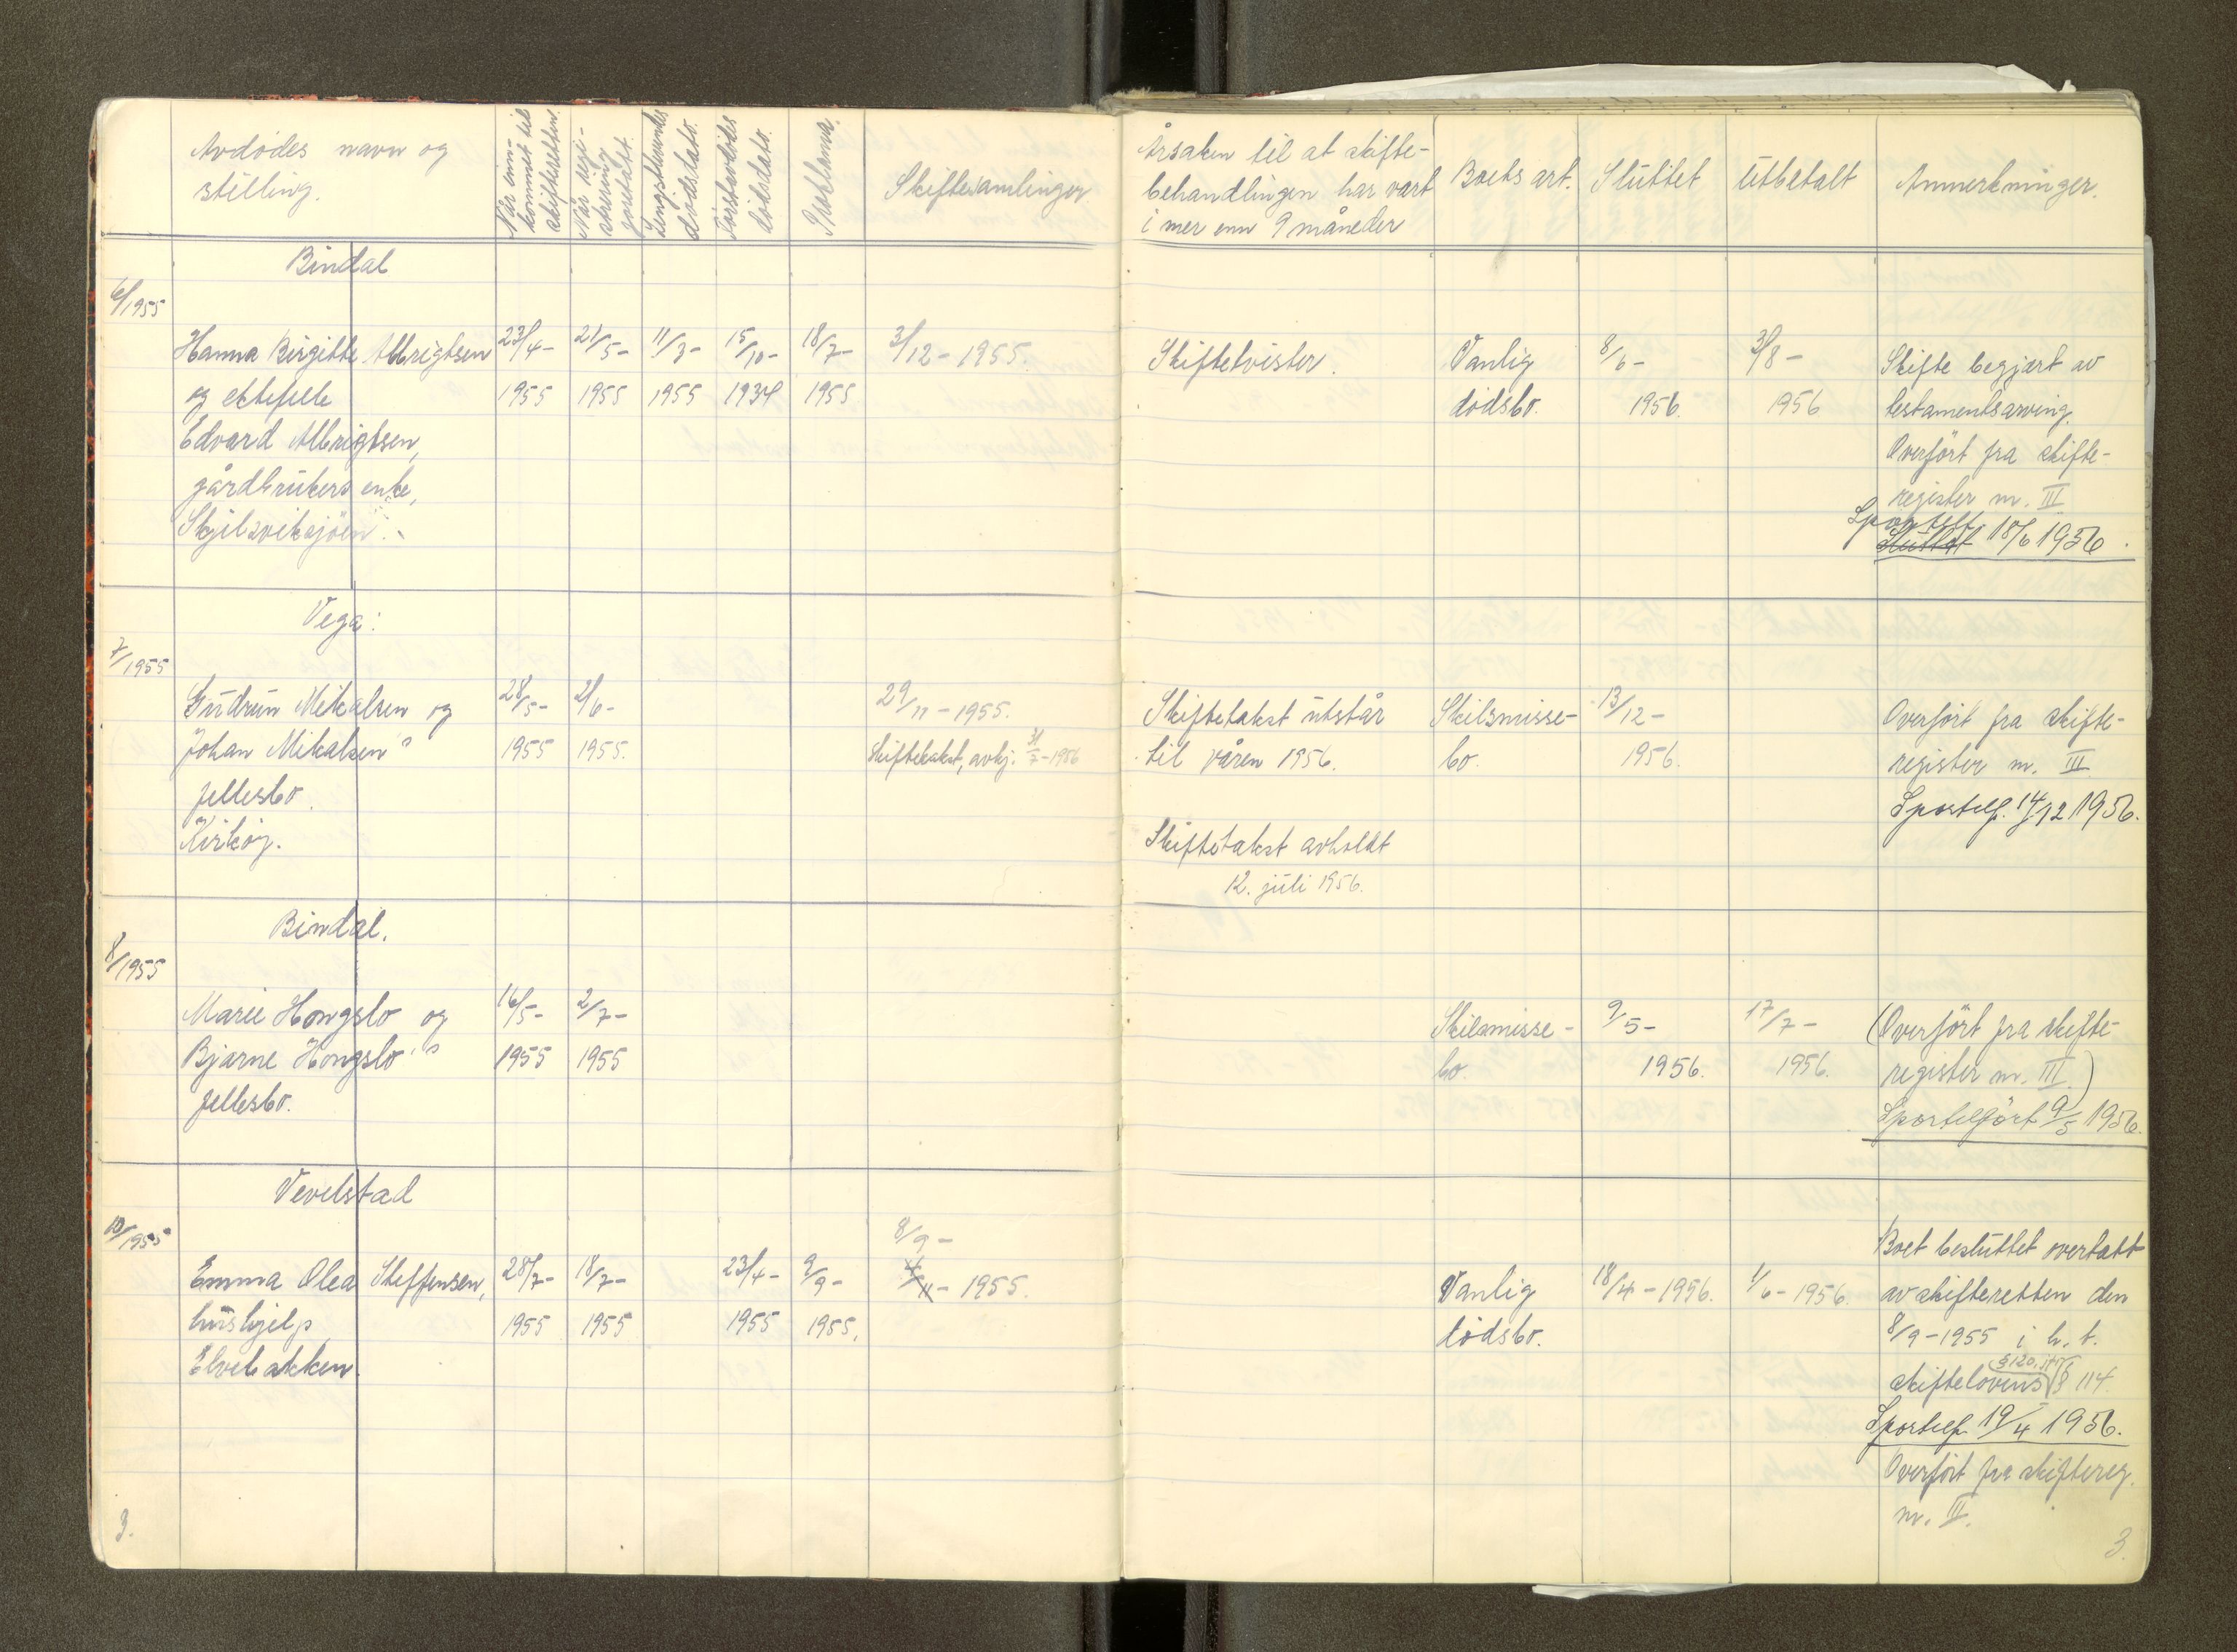 Avdødes navn og
stilling.
Når inn-
kommet til
skifteretten.
Når regi-
strering
foretatt.
Lengstlevendes
dødsdato.
Førstavdødes
dødsdato.
Proklama.
Skiftesamlinger
Årsaken til at skifte-
behandlingen har vart
i mer enn 9 måneder
Boets art.
Sluttet
Utbetalt
Anmerkninger.
Bindal
6/1955
Hanna Birgitte Albrigtsen 23/4- 21/5- 11/3- 15/10- 18/7- 3/12-1955.
og ektefelle 1955 1955 1955 1934 1955
Edvard Albrigtsen,
gårdbrukers enke,
Skjelsviksjøen.
Skiftetvister. Vanlig 8/6- 3/8- Skifte begjært av
dødsbo. 1956. 1956 testamentsarving.
Overført fra skifte-
register nr. III
Sportelf.
Sluttet 18/6 1956.
Vega:
7/1955
Gudrun Mikalsen og 28/5- 2/6- 29/11-1955.
Johan Mikalsen's 1955 1955. Skiftetakst, avhj. 31/7-1956
fellesbo.
Kirkøy.
Skiftetakst utstår Skilsmisse- 13/12- Overført fra skifte-
til våren 1956. bo. 1956. register nr. III
Sportelf. 14/12 1956.
Skiftetakst avholdt
12. juli 1956.
Bindal.
8/1955
Marie Hongslo og 16/5- 2/7-
Bjarne Hongslo's 1955 1955
fellesbo.
Skilsmisse- 9/5- 17/7- (Overført fra skifte-
bo. 1956. 1956. register nr. III.)
Sportelført 9/5 1956.
Vevelstad
10/1955
8/9-
Emma Olea Steffensen, 28/7- 18/7- 23/4- 9/9- 4/11-1955.
hushjelp 1955 1955 1955 1955.
Elvebakken.
Boet besluttet overtatt
Vanlig 18/4-1956. 1/6-1956. av skifteretten den
dødsbo. 8/9-1955 i h. t.
§120, jfr
skiftelovens § 114.
Sportelf. 19/4 1956.
Overført fra skiftereg.
nr. II.
3.
3.